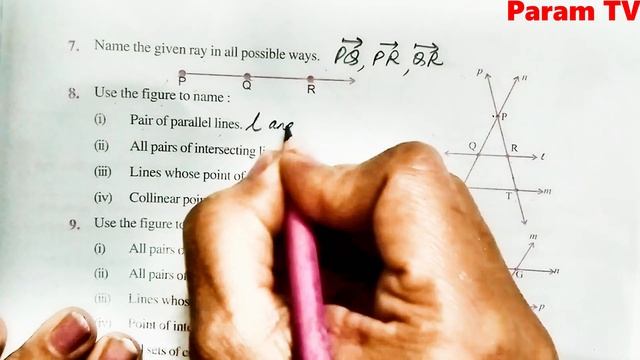 Param TV
7. Name the given ray in all possible ways. PQ, PR, QR
P Q R
8. Use the figure to name :
(i) Pair of parallel lines. l and
(ii) All pairs of intersecting
(iii) Lines whose point of
(iv) Collinear
p n
P
Q R l
T m
9. Use the figure to
(i) All pairs
(ii) All pairs of
(iii) Lines whos
(iv) Point of
sets of
m
G n
p